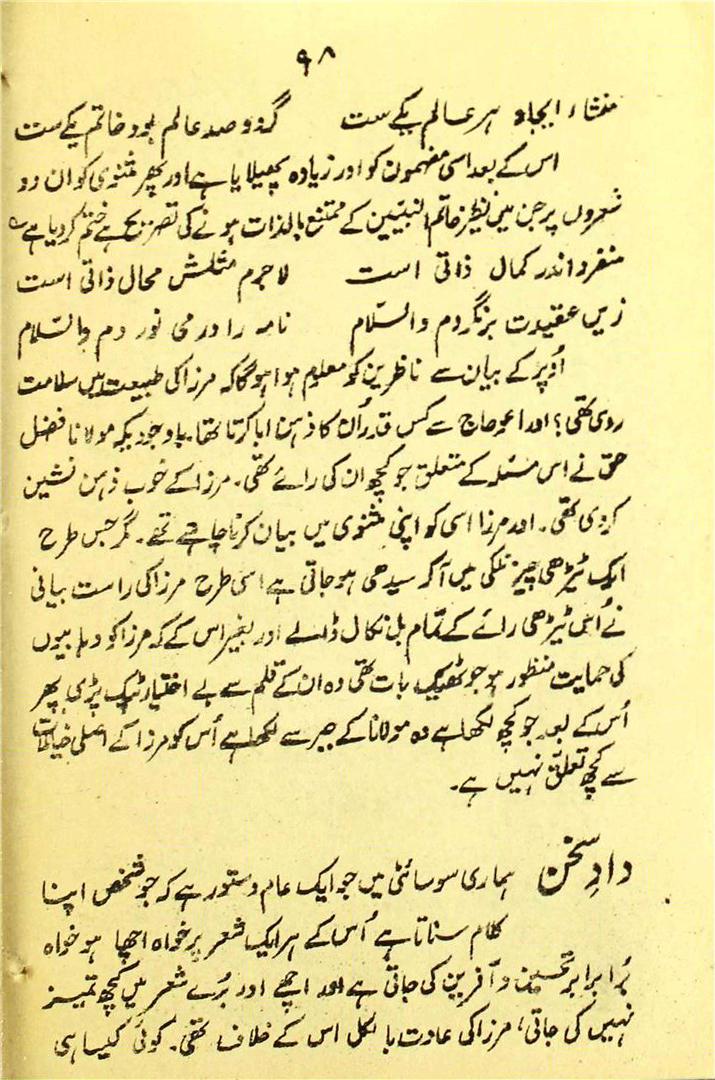 ۹۸
منشاء ایجاد ہر عالم یکے ست گر دو صد عالم بود خاتم یکے ست
اس کے بعد اسی مضمون کو اور زیادہ پھیلایا ہے اور پھر مثنوی کو ان دو
شعروں پر جن میں نظیر خاتم النبیین کے ممتنع بالذات ہونے کی تصریح ہے ختم کر دیا ہے
منفرد اندر کمال ذاتی است لاجرم مثلش محال ذاتی است
زیں عقیدت برنگردم والسّلام نامہ را در می نوردم والسّلام
اُوپر کے بیان سے ناظرین کو معلوم ہوا ہو گا کہ مرزا کی طبیعت میں سلامت
روی تھی؟ اور اعوجاج سے کس قدر اُن کا ذہن ابا کرتا تھا۔ باوجودیکہ مولانا فضل
حق نے اس مسئلہ کے متعلق جو کچھ ان کی رائے تھی۔ مرزا کے خوب ذہن نشین
کر دی تھی۔ اور مرزا اسی کو اپنی مثنوی میں بیان کرنا چاہتے تھے۔ مگر جس طرح
ایک ٹیڑھی چیز نلکی میں آ کر سیدھی ہو جاتی ہے اسی طرح مرزا کی راست بیانی
نے اُس ٹیڑھی رائے کے تمام بل نکال ڈالے اور بغیر اس کے کہ مرزا کو وہابیوں
کی حمایت منظور ہو جو ٹھیک بات تھی وہ ان کے قلم سے بے اختیار ٹپک پڑی پھر
اُس کے بعد جو کچھ لکھا ہے وہ مولانا کے جبر سے لکھا ہے اُس کو مرزا کے اصلی خیالات
سے کچھ تعلق نہیں ہے۔
دادِ سخن ہماری سوسائٹی میں جو ایک عام دستور ہے کہ جو شخص اپنا
کلام سناتا ہے اُس کے ہر ایک شعر پر خواہ اچھا ہو خواہ
بُرا برابر تحسین و آفرین کی جاتی ہے اور اچھے اور بُرے شعر میں کچھ تمیز
نہیں کی جاتی، مرزا کی عادت بالکل اس کے خلاف تھی۔ کوئی کیسا ہی